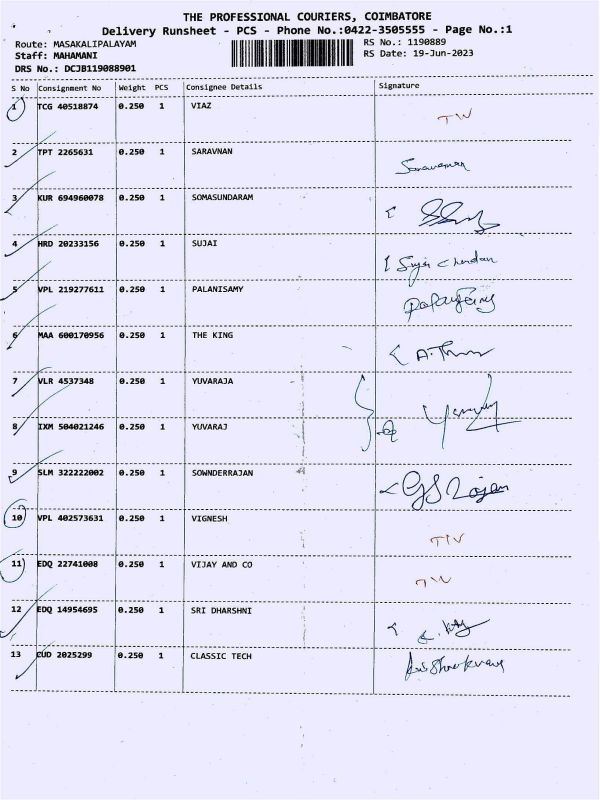 THE PROFESSIONAL COURIERS, COIMBATORE
Delivery Runsheet - PCS - Phone No.:0422-3505555 - Page No.:1
Route: MASAKALIPALAYAM RS No.: 1190889
Staff: MAHAMANI RS Date: 19-Jun-2023
DRS No.: DCJB119088901
S No Consignment No Weight PCS Consignee Details Signature
1 TCG 40518874 0.250 1 VIAZ
2 TPT 2265631 0.250 1 SARAVNAN
3 KUR 694960078 0.250 1 SOMASUNDARAM
4 HRD 20233156 0.250 1 SUJAI
5 VPL 219277611 0.250 1 PALANISAMY
6 MAA 600170956 0.250 1 THE KING
7 VLR 4537348 0.250 1 YUVARAJA
8 IXM 504021246 0.250 1 YUVARAJ
9 SLM 322222002 0.250 1 SOWNDERRAJAN
10 VPL 402573631 0.250 1 VIGNESH
11 EDQ 22741008 0.250 1 VIJAY AND CO
12 EDQ 14954695 0.250 1 SRI DHARSHNI
13 CUD 2025299 0.250 1 CLASSIC TECH